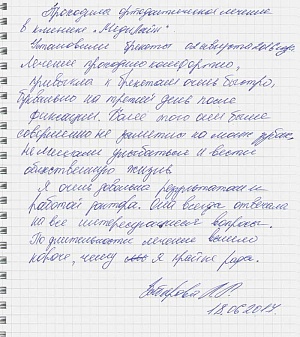 Проходила ортодонтическое лечение
в клинике «Медилайн».
Установление брекеты августа 2016 года
Лечение проходило комфортно,
привыкла к брекетам очень быстро,
буквально на третий день после
фиксации. Более того они были
совершенно не заметны на моих зубах,
не мешали улыбаться и вести
общественную жизнь.
Я очень довольна результатом и
работой доктора. Они всегда отвечала
на все интересующие вопросы.
По длительности лечение вышло
короче, чему я крайне рада.
18.06.2017